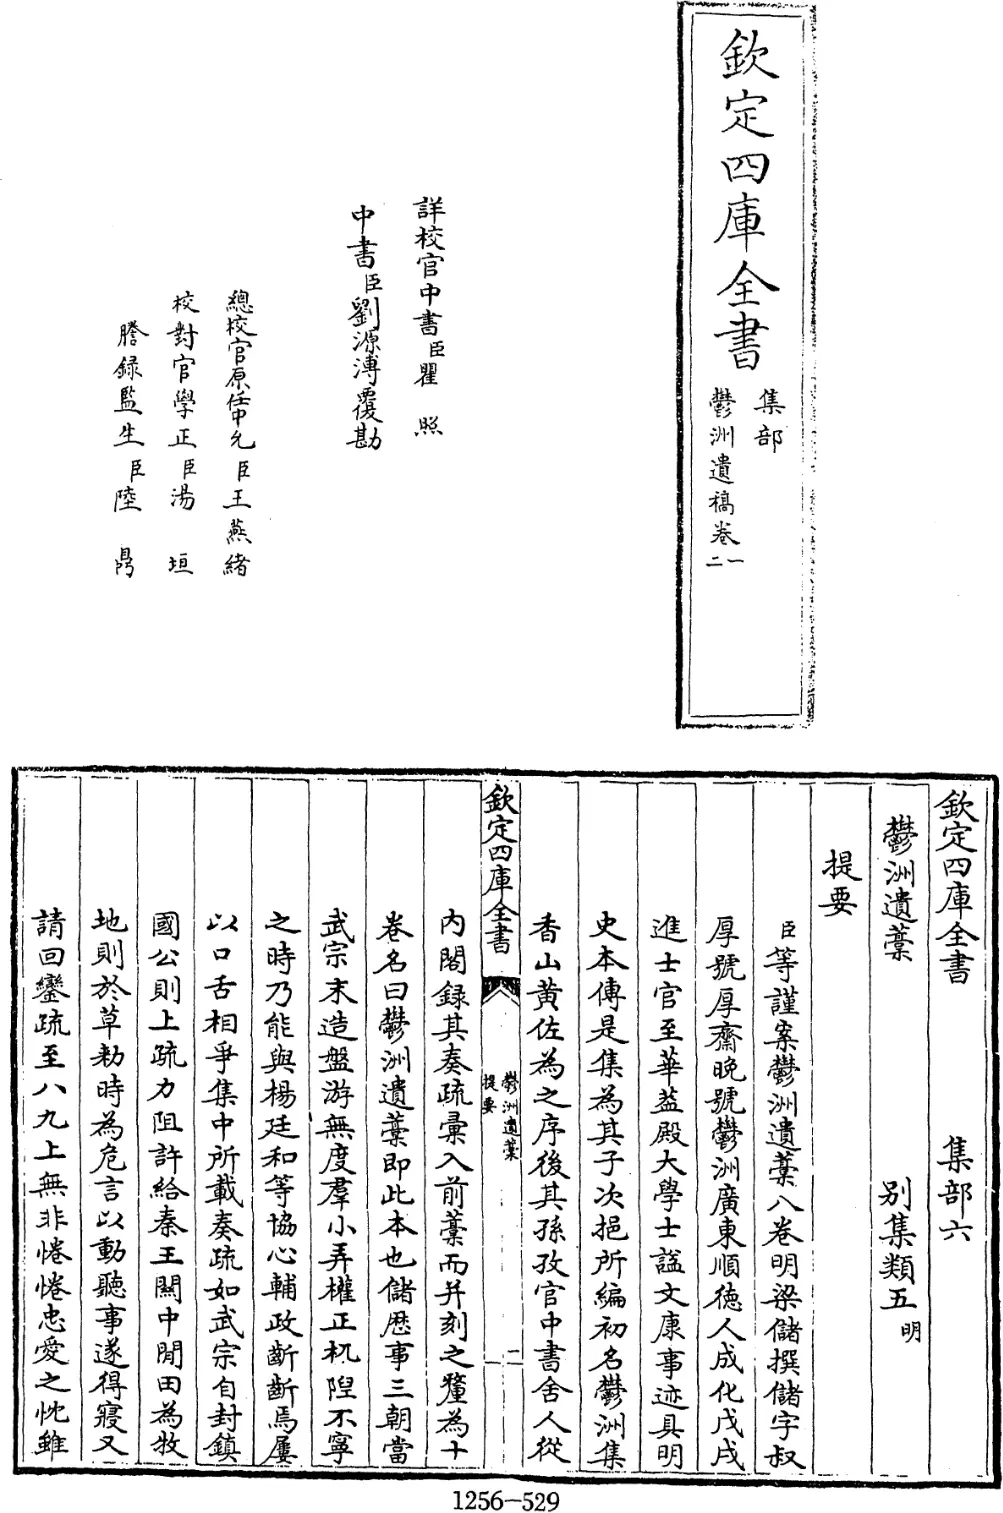 欽定四庫全書
集部
鬱洲遺稿卷一
二
詳校官中書臣瞿照
中書臣劉源溥覆勘
總校官原任中允臣王燕緒
校對官學正臣湯垣
謄録監生臣陸昺
欽定四庫全書 集部六
鬱洲遺藁 别集類五明
提要
臣等謹案鬱洲遺藁八卷明梁儲撰儲字叔
厚號厚齋晚號鬱洲廣東順德人成化戊戌
進士官至華葢殿大學士諡文康事迹具明
史本傳是集為其子次挹所編初名鬱洲集
香山黄佐為之序後其孫孜官中書舍人從
欽定四庫全書
鬱洲遺藁
提要
二
内閣録其奏疏彚入前藁而并刻之釐為十
卷名曰鬱洲遺藁即此本也儲歴事三朝當
武宗末造盤游無度羣小弄權正杌隉不寧
之時乃能與楊廷和等協心輔政齗齗焉屢
以口舌相爭集中所載奏疏如武宗自封鎮
國公則上疏力阻許給秦王關中閒田為牧
地則於草勅時為危言以動聽事遂得寢又
請回鑾疏至八九上無非惓惓忠愛之忱雖
1256-529